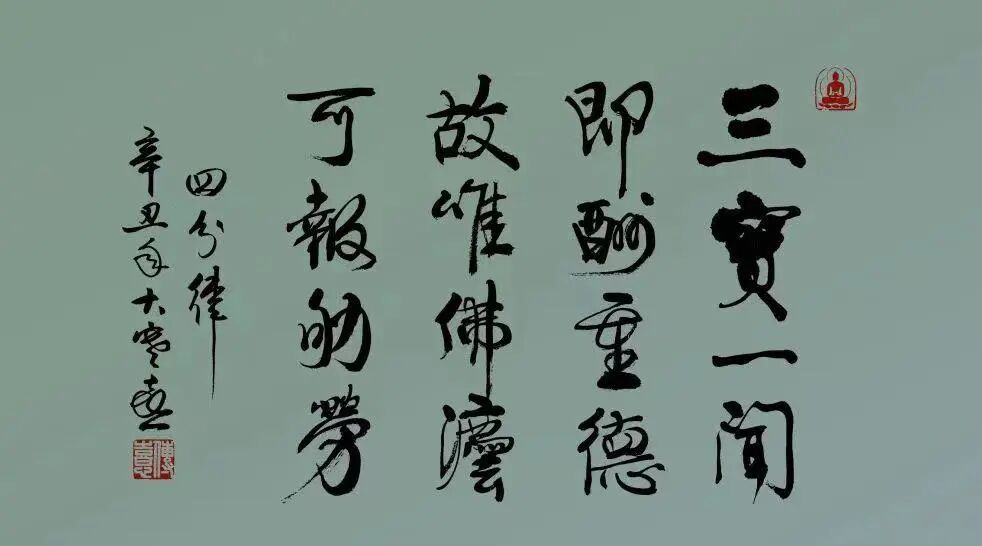 三寶一聞
即酬重德
故唯佛灋
可報劬勞
四分律
辛丑年大寒